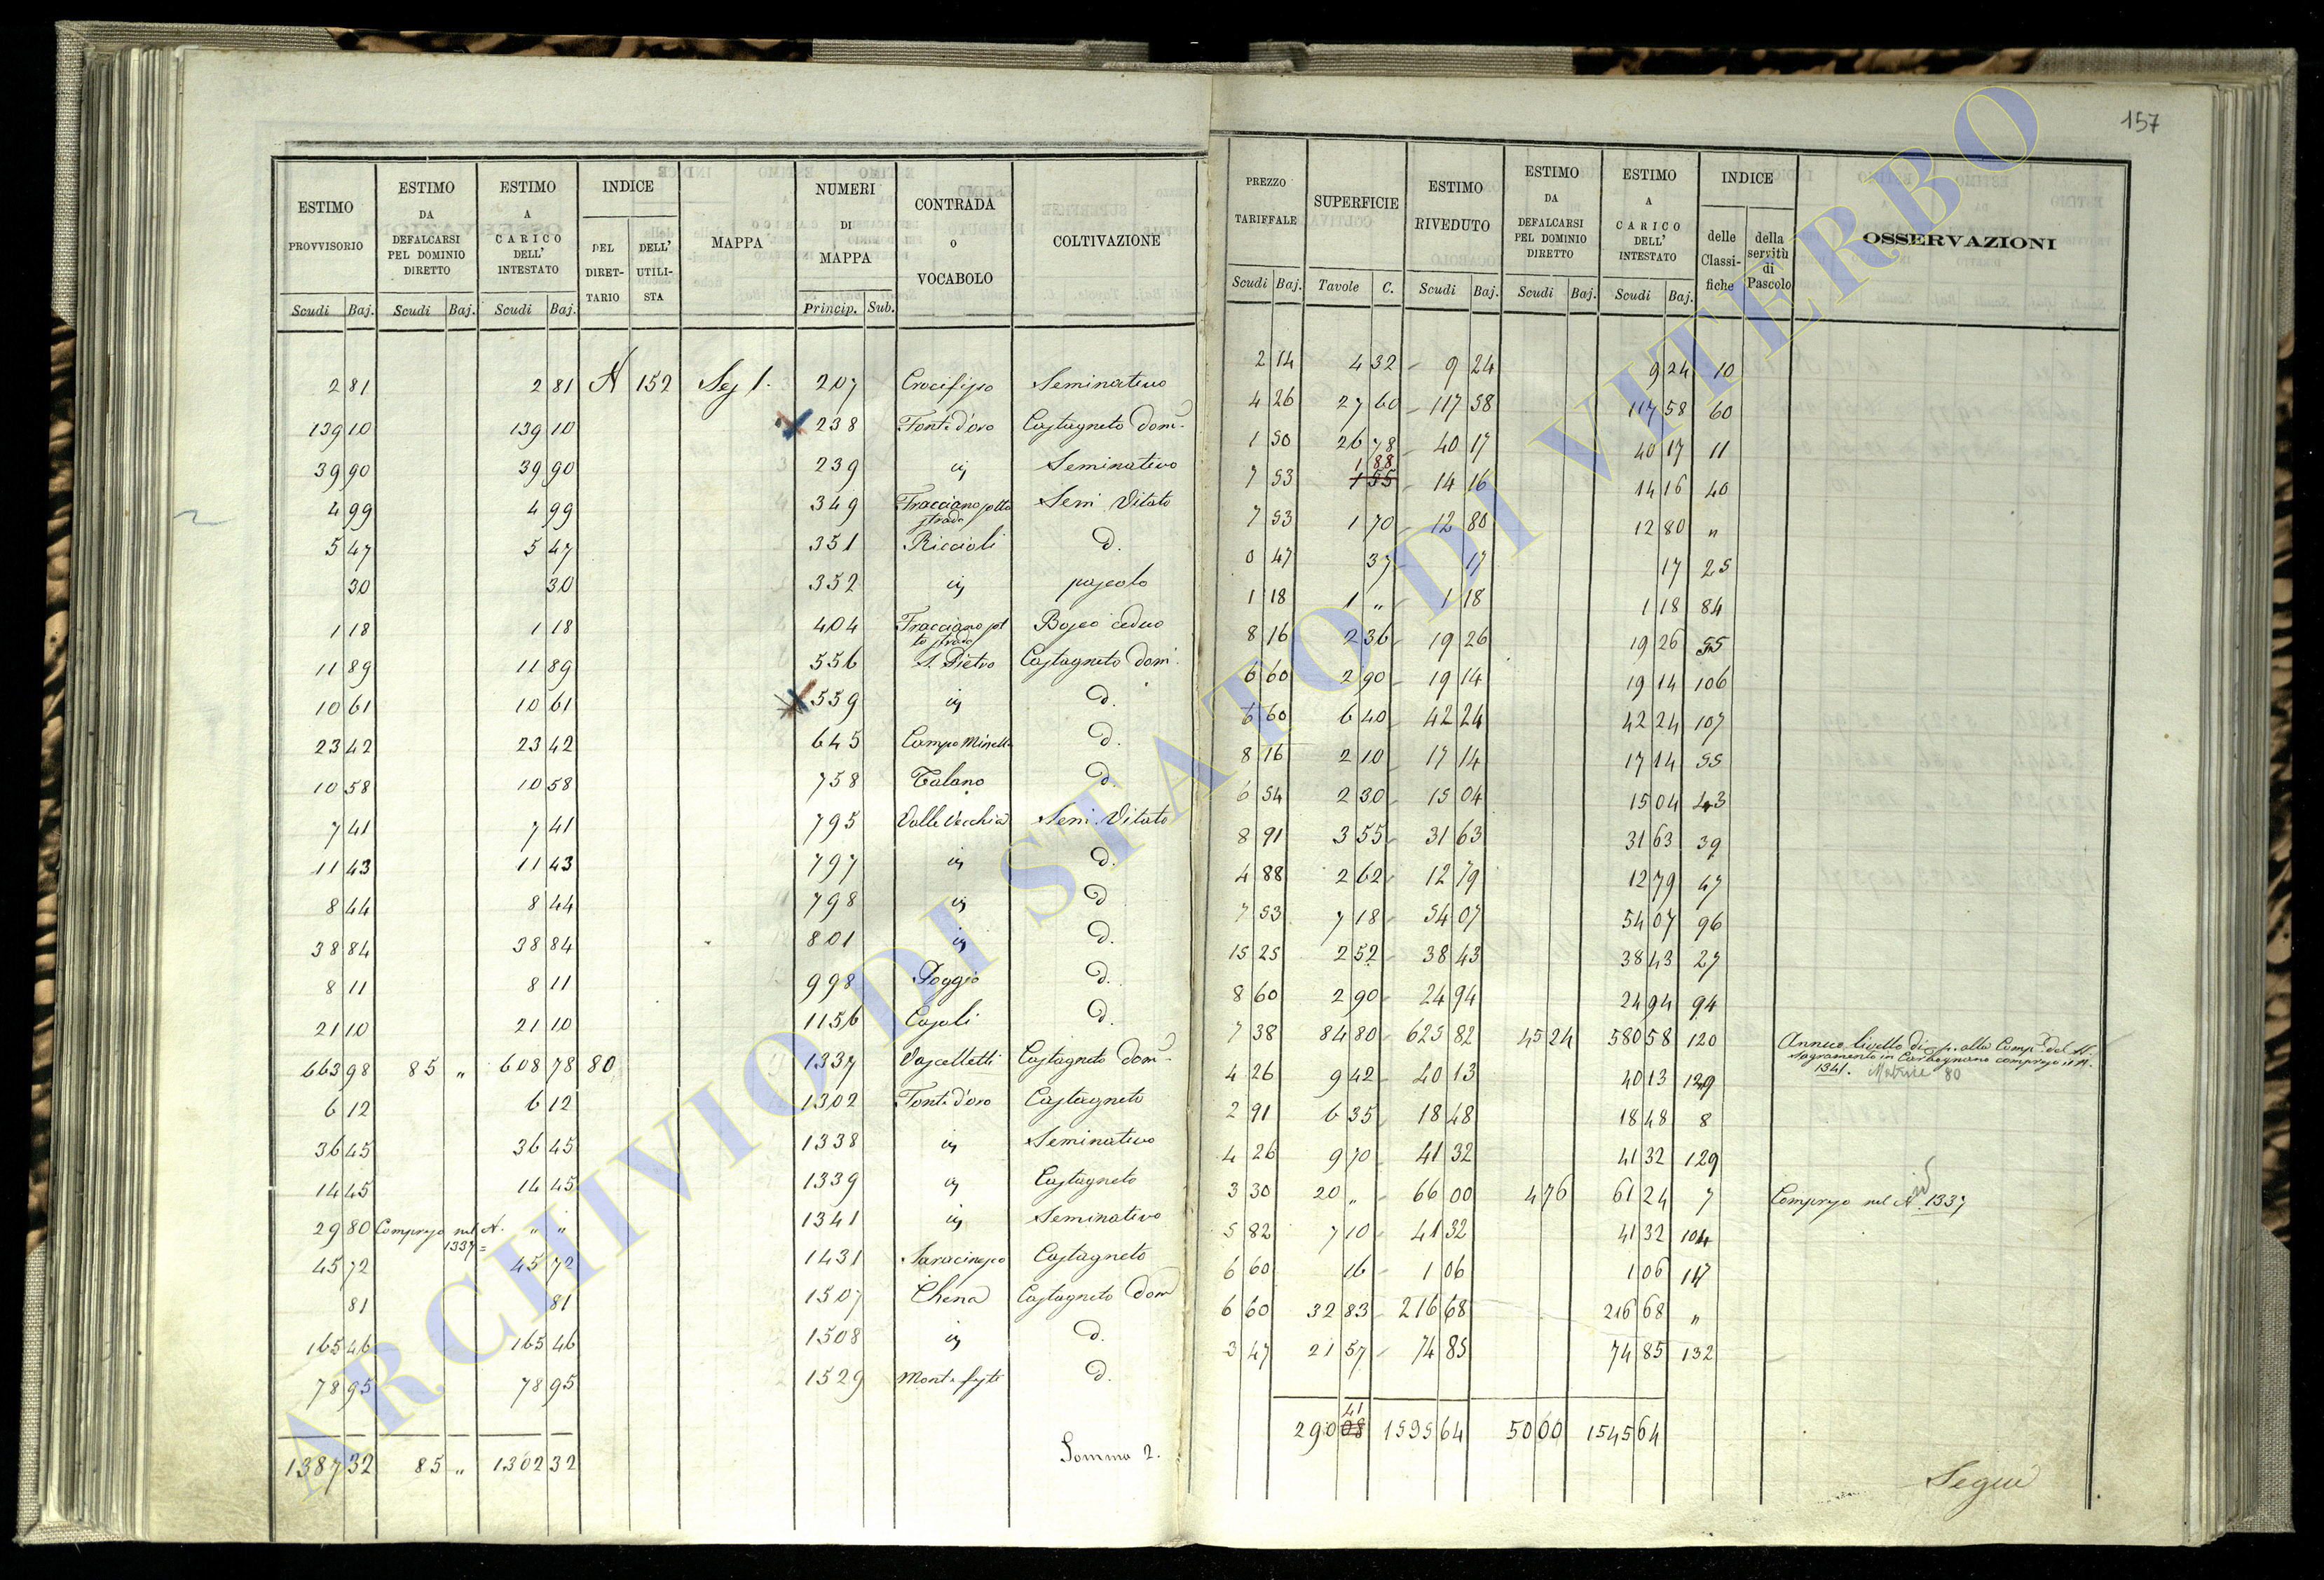 157
ESTIMO PROVVISORIO | ESTIMO DA DEFALCARSI PEL DOMINIO DIRETTO | ESTIMO A CARICO DELL' INTESTATO | INDICE | MAPPA | NUMERI DI MAPPA | CONTRADA O VOCABOLO | COLTIVAZIONE
DEL DIRETTARIO | DELL' UTILISTA
Scudi | Baj. | Scudi | Baj. | Scudi | Baj. | Princip. | Sub.
2 81 | 2 81 | A | 152 | Sez 1. | 207 | Crocifisso | Seminativo
139 10 | 139 10 | 238 | Font. d'oro | Castagneto dom.
39 90 | 39 90 | 239 | id | Seminativo
4 99 | 4 99 | 349 | Fracciano sotto strada | Semi Vitato
5 47 | 5 47 | 351 | Riccioli | d.
30 | 30 | 352 | id | pascolo
1 18 | 1 18 | 404 | Fracciano sotto strada | Bosco ceduo
11 89 | 11 89 | 556 | S. Pietro | Castagneto dom.
10 61 | 10 61 | 559 | id | d.
23 42 | 23 42 | 645 | Campo Minelli | d.
10 58 | 10 58 | 758 | Talano | d.
7 41 | 7 41 | 795 | Valle Vecchia | Semi. Vitato
11 43 | 11 43 | 797 | id | d.
8 44 | 8 44 | 798 | id | d
38 84 | 38 84 | 801 | id | d.
8 11 | 8 11 | 998 | Poggio | d.
21 10 | 21 10 | 1156 | Casali | d.
663 98 | 85 " | 608 78 | 80 | 1337 | Vascelletti | Castagneto dom.
6 12 | 6 12 | 1302 | Font. d'oro | Castagneto
36 45 | 36 45 | 1338 | id | Seminativo
14 45 | 14 45 | 1339 | id | Castagneto
29 80 | Compreso nel N. 1337 = | " " | 1341 | id | Seminativo
45 72 | 45 72 | 1431 | Saracinesco | Castagneto
81 | 81 | 1507 | Chena | Castagneto dom
165 46 | 165 46 | 1508 | id | d.
78 95 | 78 95 | 1529 | | d.
1387 32 | 85 " | 1302 32 | Somma 2.
PREZZO TARIFFALE | SUPERFICIE | ESTIMO RIVEDUTO | ESTIMO DA DEFALCARSI PEL DOMINIO DIRETTO | ESTIMO A CARICO DELL' INTESTATO | INDICE | OSSERVAZIONI
delle Classifiche | della servitù di Pascolo
Scudi | Baj. | Tavole | C. | Scudi | Baj. | Scudi | Baj. | Scudi | Baj.
2 14 | 4 32 | 9 24 | 9 24 | 10
4 26 | 27 60 | 117 58 | 117 58 | 60
1 50 | 26 78 | 40 17 | 40 17 | 11
7 53 | 1 88 1 55 | 14 16 | 14 16 | 40
7 53 | 1 70 | 12 80 | 12 80 | "
0 47 | 37 | 17 | 17 | 25
1 18 | 1 " | 1 18 | 1 18 | 84
8 16 | 2 36 | 19 26 | 19 26 | 55
6 60 | 2 90 | 19 14 | 19 14 | 106
6 60 | 6 40 | 42 24 | 42 24 | 107
8 16 | 2 10 | 17 14 | 17 14 | 55
6 54 | 2 30 | 15 04 | 15 04 | 43
8 91 | 3 55 | 31 63 | 31 63 | 39
4 88 | 2 62 | 12 79 | 12 79 | 47
7 53 | 7 18 | 54 07 | 54 07 | 96
15 25 | 2 52 | 38 43 | 38 43 | 27
8 60 | 2 90 | 24 94 | 24 94 | 94
7 38 | 84 80 | 625 82 | 45 24 | 580 58 | 120 | Annuo livello di alla Comp. del SS. Sagramento in Carbognano compreso il N. 1341. Matrice 80
4 26 | 9 42 | 40 13 | 40 13 | 129
2 91 | 6 35 | 18 48 | 18 48 | 8
4 26 | 9 70 | 41 32 | 41 32 | 129
3 30 | 20 " | 66 00 | 4 76 | 61 24 | 7 | Compreso nel N. 1337
5 82 | 7 10 | 41 32 | 41 32 | 104
6 60 | 16 | 1 06 | 1 06 | 117
6 60 | 32 83 | 216 68 | 216 68 | "
3 47 | 21 57 | 74 85 | 74 85 | 132
290 41 08 | 1595 64 | 50 00 | 1545 64
Segue
ARCHIVIO DI STATO DI VITERBO